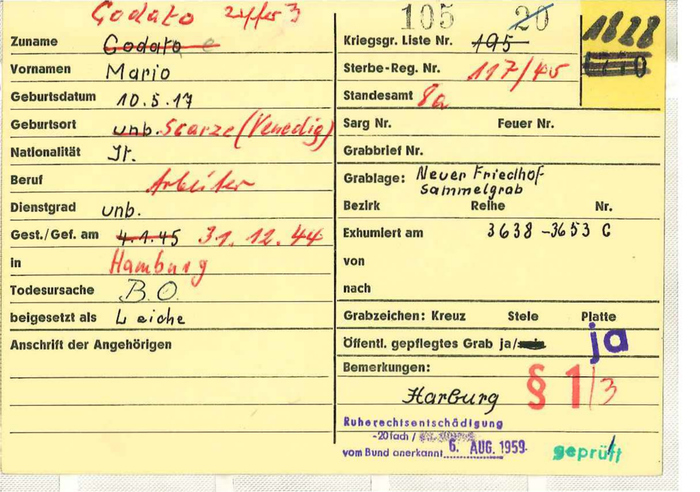 Godato Ziffer 3
105 20
1828
Zuname Godato e
Kriegsgr. Liste Nr. 195
Vornamen Mario
Sterbe-Reg. Nr. 117/45
Geburtsdatum 10.5.17
Standesamt 8a
Geburtsort unb. Scarze (Venedig)
Sarg Nr. Feuer Nr.
Nationalität It.
Grabbrief Nr.
Beruf Arbeiter
Grablage: Neuer Friedhof
Sammelgrab
Dienstgrad unb.
Bezirk Reihe Nr.
Gest./Gef. am 4.1.45 31.12.44
Exhumiert am 3638-3653 C
in Hamburg
von
Todesursache B.O.
nach
beigesetzt als Leiche
Grabzeichen: Kreuz Stele Platte
Anschrift der Angehörigen
Öffentl. gepflegtes Grab ja/ ja
Bemerkungen:
Harburg § 1/3
Ruherechtsentschädigung
-20fach /
vom Bund anerkannt 6. AUG. 1959
geprüft